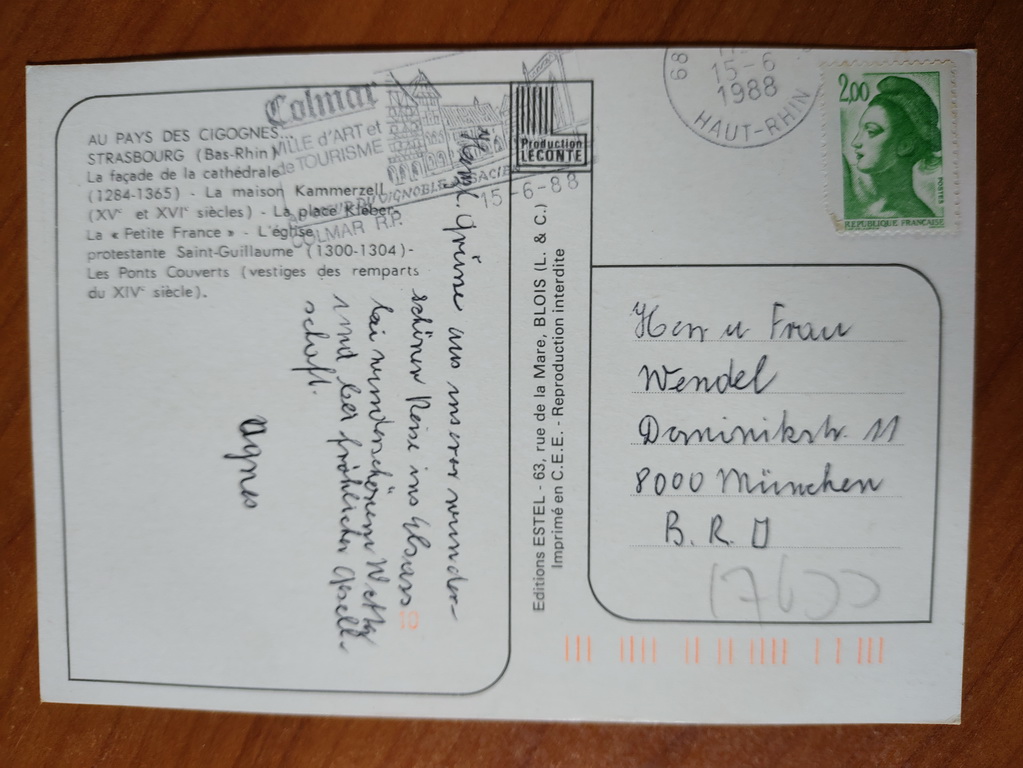 AU PAYS DES CIGOGNES...
STRASBOURG (Bas-Rhin)
La façade de la cathédrale
(1284-1365) - La maison Kammerzell
(XVe et XVIe siècles) - La place Kléber
La « Petite France » - L'église
protestante Saint-Guillaume (1300-1304)-
Les Ponts Couverts (vestiges des remparts
du XIVe siècle).
Colmar
VILLE d'ART et
de TOURISME
DU VIGNOBLE
COLMAR R.P.
15-6-88
Production
LECONTE
Herzl. Grüsse aus unserer wunder-
schönen Reise ins Elsass
bei wunderschönem Wetter
und bei fröhlicher Gesell-
schaft.
Agnes
Editions ESTEL - 63, rue de la Mare, BLOIS (L. & C.)
Imprimé en C.E.E. - Reproduction interdite
68
15-6
1988
HAUT-RHIN
2,00
POSTES
REPUBLIQUE FRANÇAISE
Herr u Frau
Wendel
Dominikstr. 11
8000 München
B.R.D